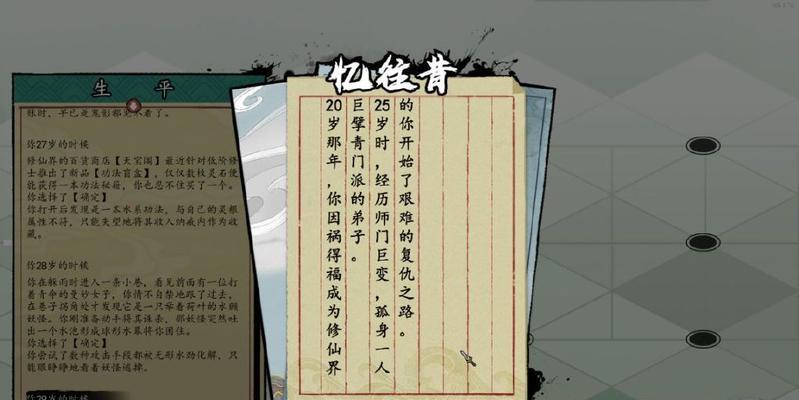 忆往昔
生平
你27岁的时候
修仙界的百货商店【天宝阁】最近针对低阶修
士推出了新品【功法盲盒】，仅仅数枚灵石便
能获得一本功法秘籍，你也忍不住买了一个。
你选择了【确定】
你打开后发现是一本水系功法，与自己的灵根
属性不符，只能失望地将其收入纳戒内作为收
藏。
你28岁的时候
你在躲雨时进入一条小巷，看见前面有一位打
着青伞的曼妙女子，你情不自禁地跟了过去，
在巷子拐角处才发现它是一只举着荷叶的水
妖怪。你刚准备动手将其诛杀，那妖怪突然吐
出一个水泡形成球形水幕将你困住。
你选择了【确定】
你尝试了数种攻击手段都被无形水劲化解，只
能眼睁睁地看着妖怪逃掉。
20岁那年，你因祸得福成为修仙界
巨擘青门派的弟子。
25岁时，经历师门巨变，孤身一人
的你开始了艰难的复仇之路。